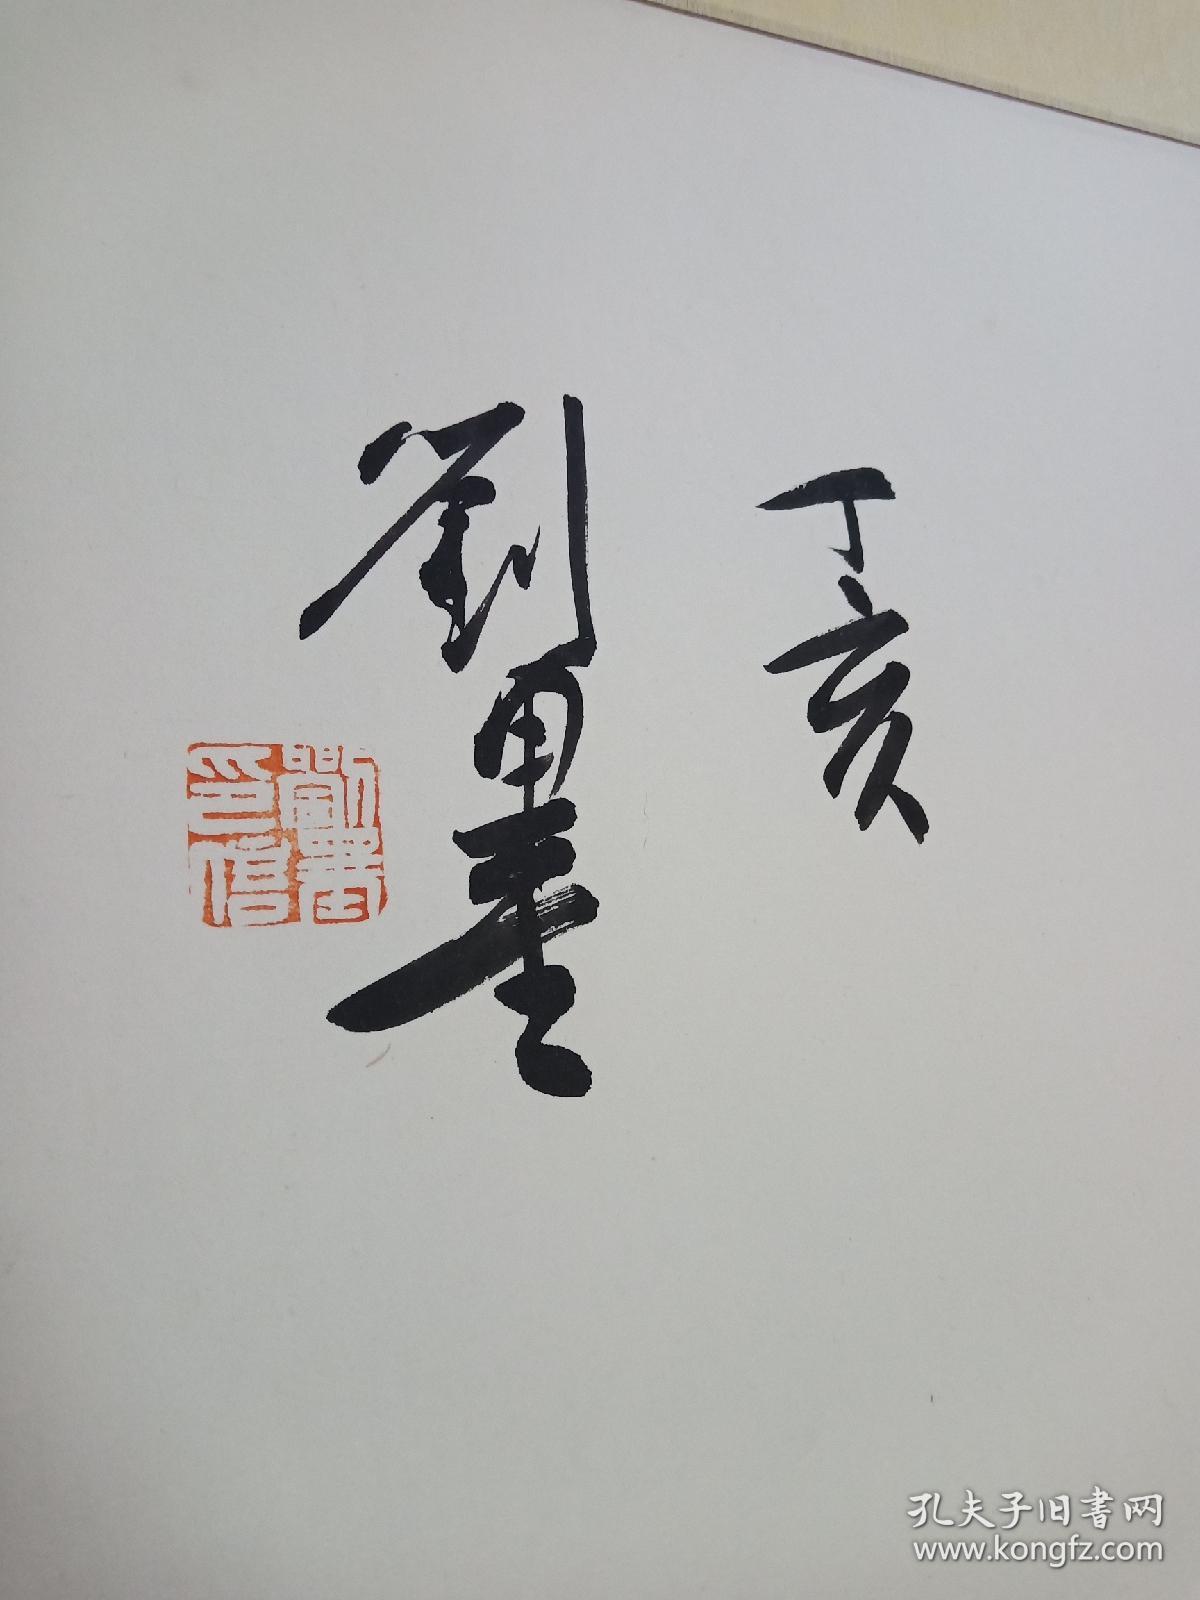 丁亥
劉墨
劉墨
印信
孔夫子旧書网
www.kongfz.com